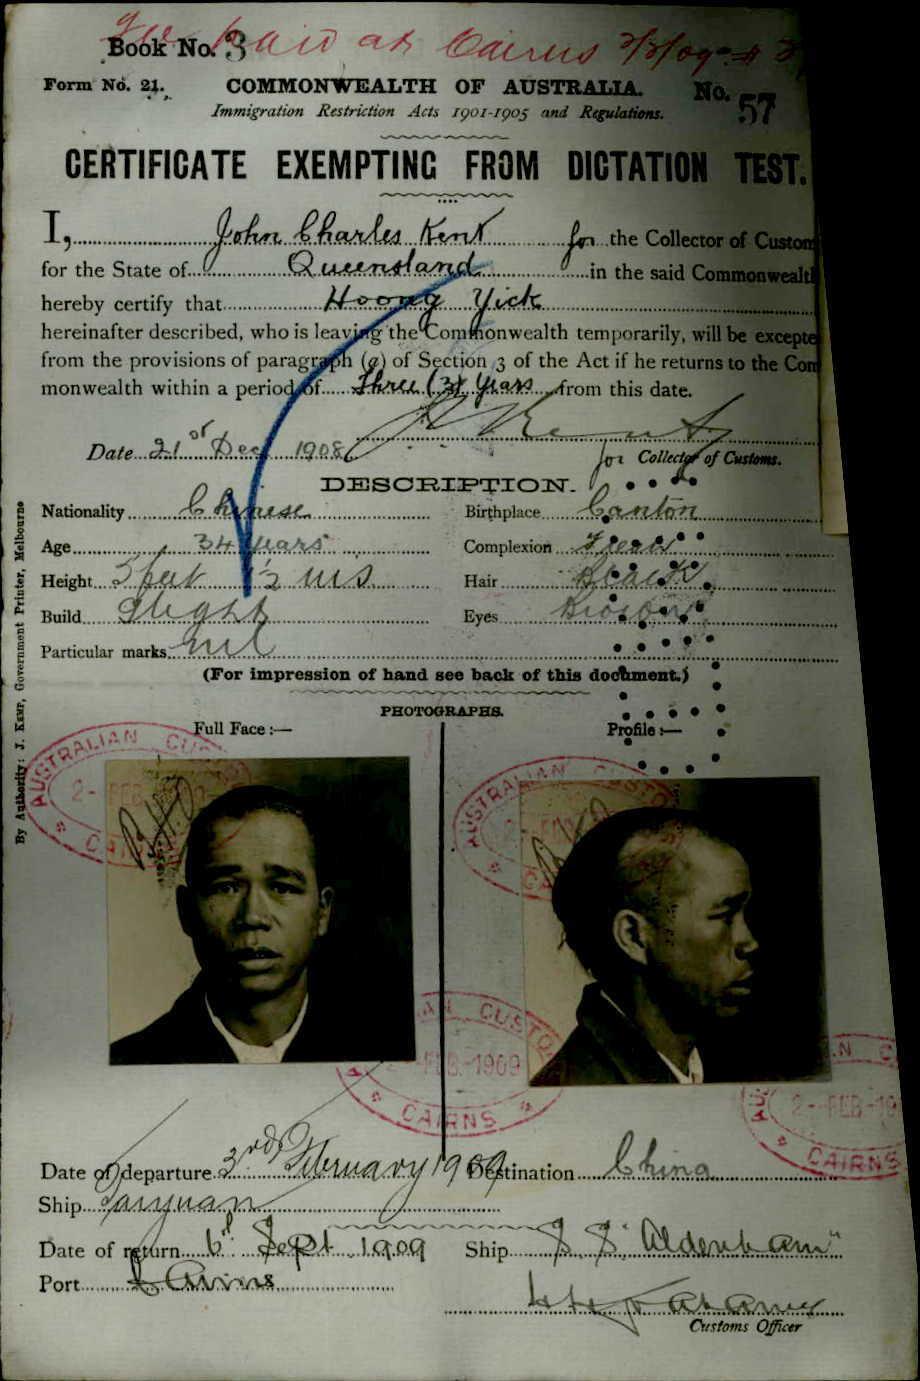 Fee Paid at Cairns 3/3/09
Book No. 3
Form No. 21. COMMONWEALTH OF AUSTRALIA. No. 57
Immigration Restriction Acts 1901-1905 and Regulations.
CERTIFICATE EXEMPTING FROM DICTATION TEST.
I, John Charles Kent for the Collector of Custom
for the State of Queensland in the said Commonwealth
hereby certify that Hoong Yick
hereinafter described, who is leaving the Commonwealth temporarily, will be excepte
from the provisions of paragraph (a) of Section 3 of the Act if he returns to the Com
monwealth within a period of Three (3) Years from this date.
Date 21st Dec 1908 J C Kent
for Collector of Customs.
DESCRIPTION.
Nationality Chinese Birthplace Canton
Age 34 Years Complexion
Height 5 feet ½ ins Hair Black
Build Slight Eyes Brown
Particular marks nil
(For impression of hand see back of this document.)
PHOTOGRAPHS.
Full Face:— Profile:—
By Authority: J. Kemp, Government Printer, Melbourne
AUSTRALIAN CUSTO
2-FEB
CAIRNS
AUSTRALIAN CUSTO
AN CUSTO
-FEB.-1909
CAIRNS
2-FEB-19
CAIRNS
Date of departure 3rd February 1909 Destination China
Ship Taiyuan
Date of return 6th Sept 1909 Ship S.S. "Aldenham"
Port Cairns
Customs Officer